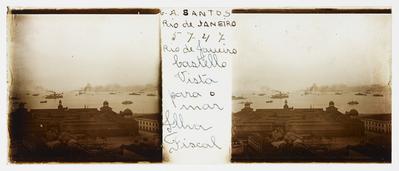 G. A. SANTOS
RIO DE JANEIRO
5747
Rio de Janeiro
bastillo
Vista
para o
mar
Ilha
Fiscal